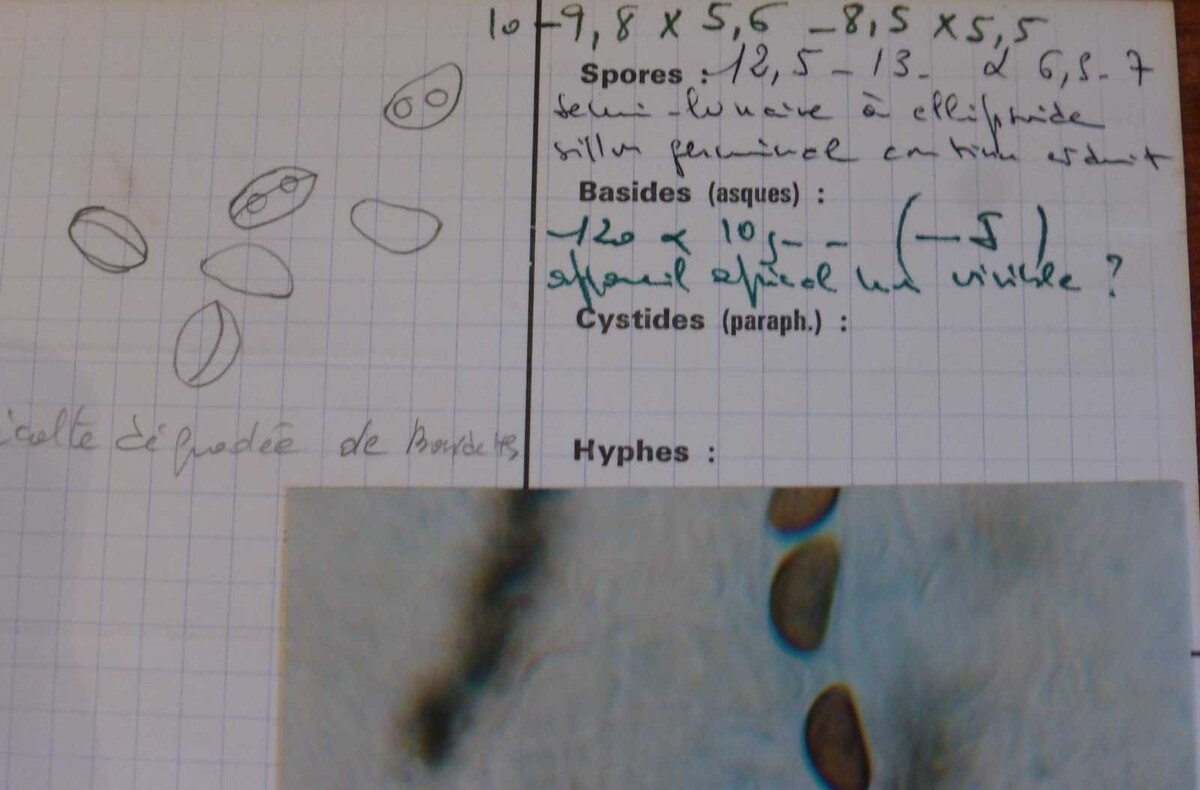 10 - 9,8 x 5,6 - 8,5 x 5,5
Spores : 12,5 - 13 - x 6,5 - 7
semi-lunaire à ellipsoïde
sillon germinal continu
Basides (asques) :
120 x 10 - - (-5)
appareil apical non visible ?
Cystides (paraph.) :
dégradée de
Hyphes :